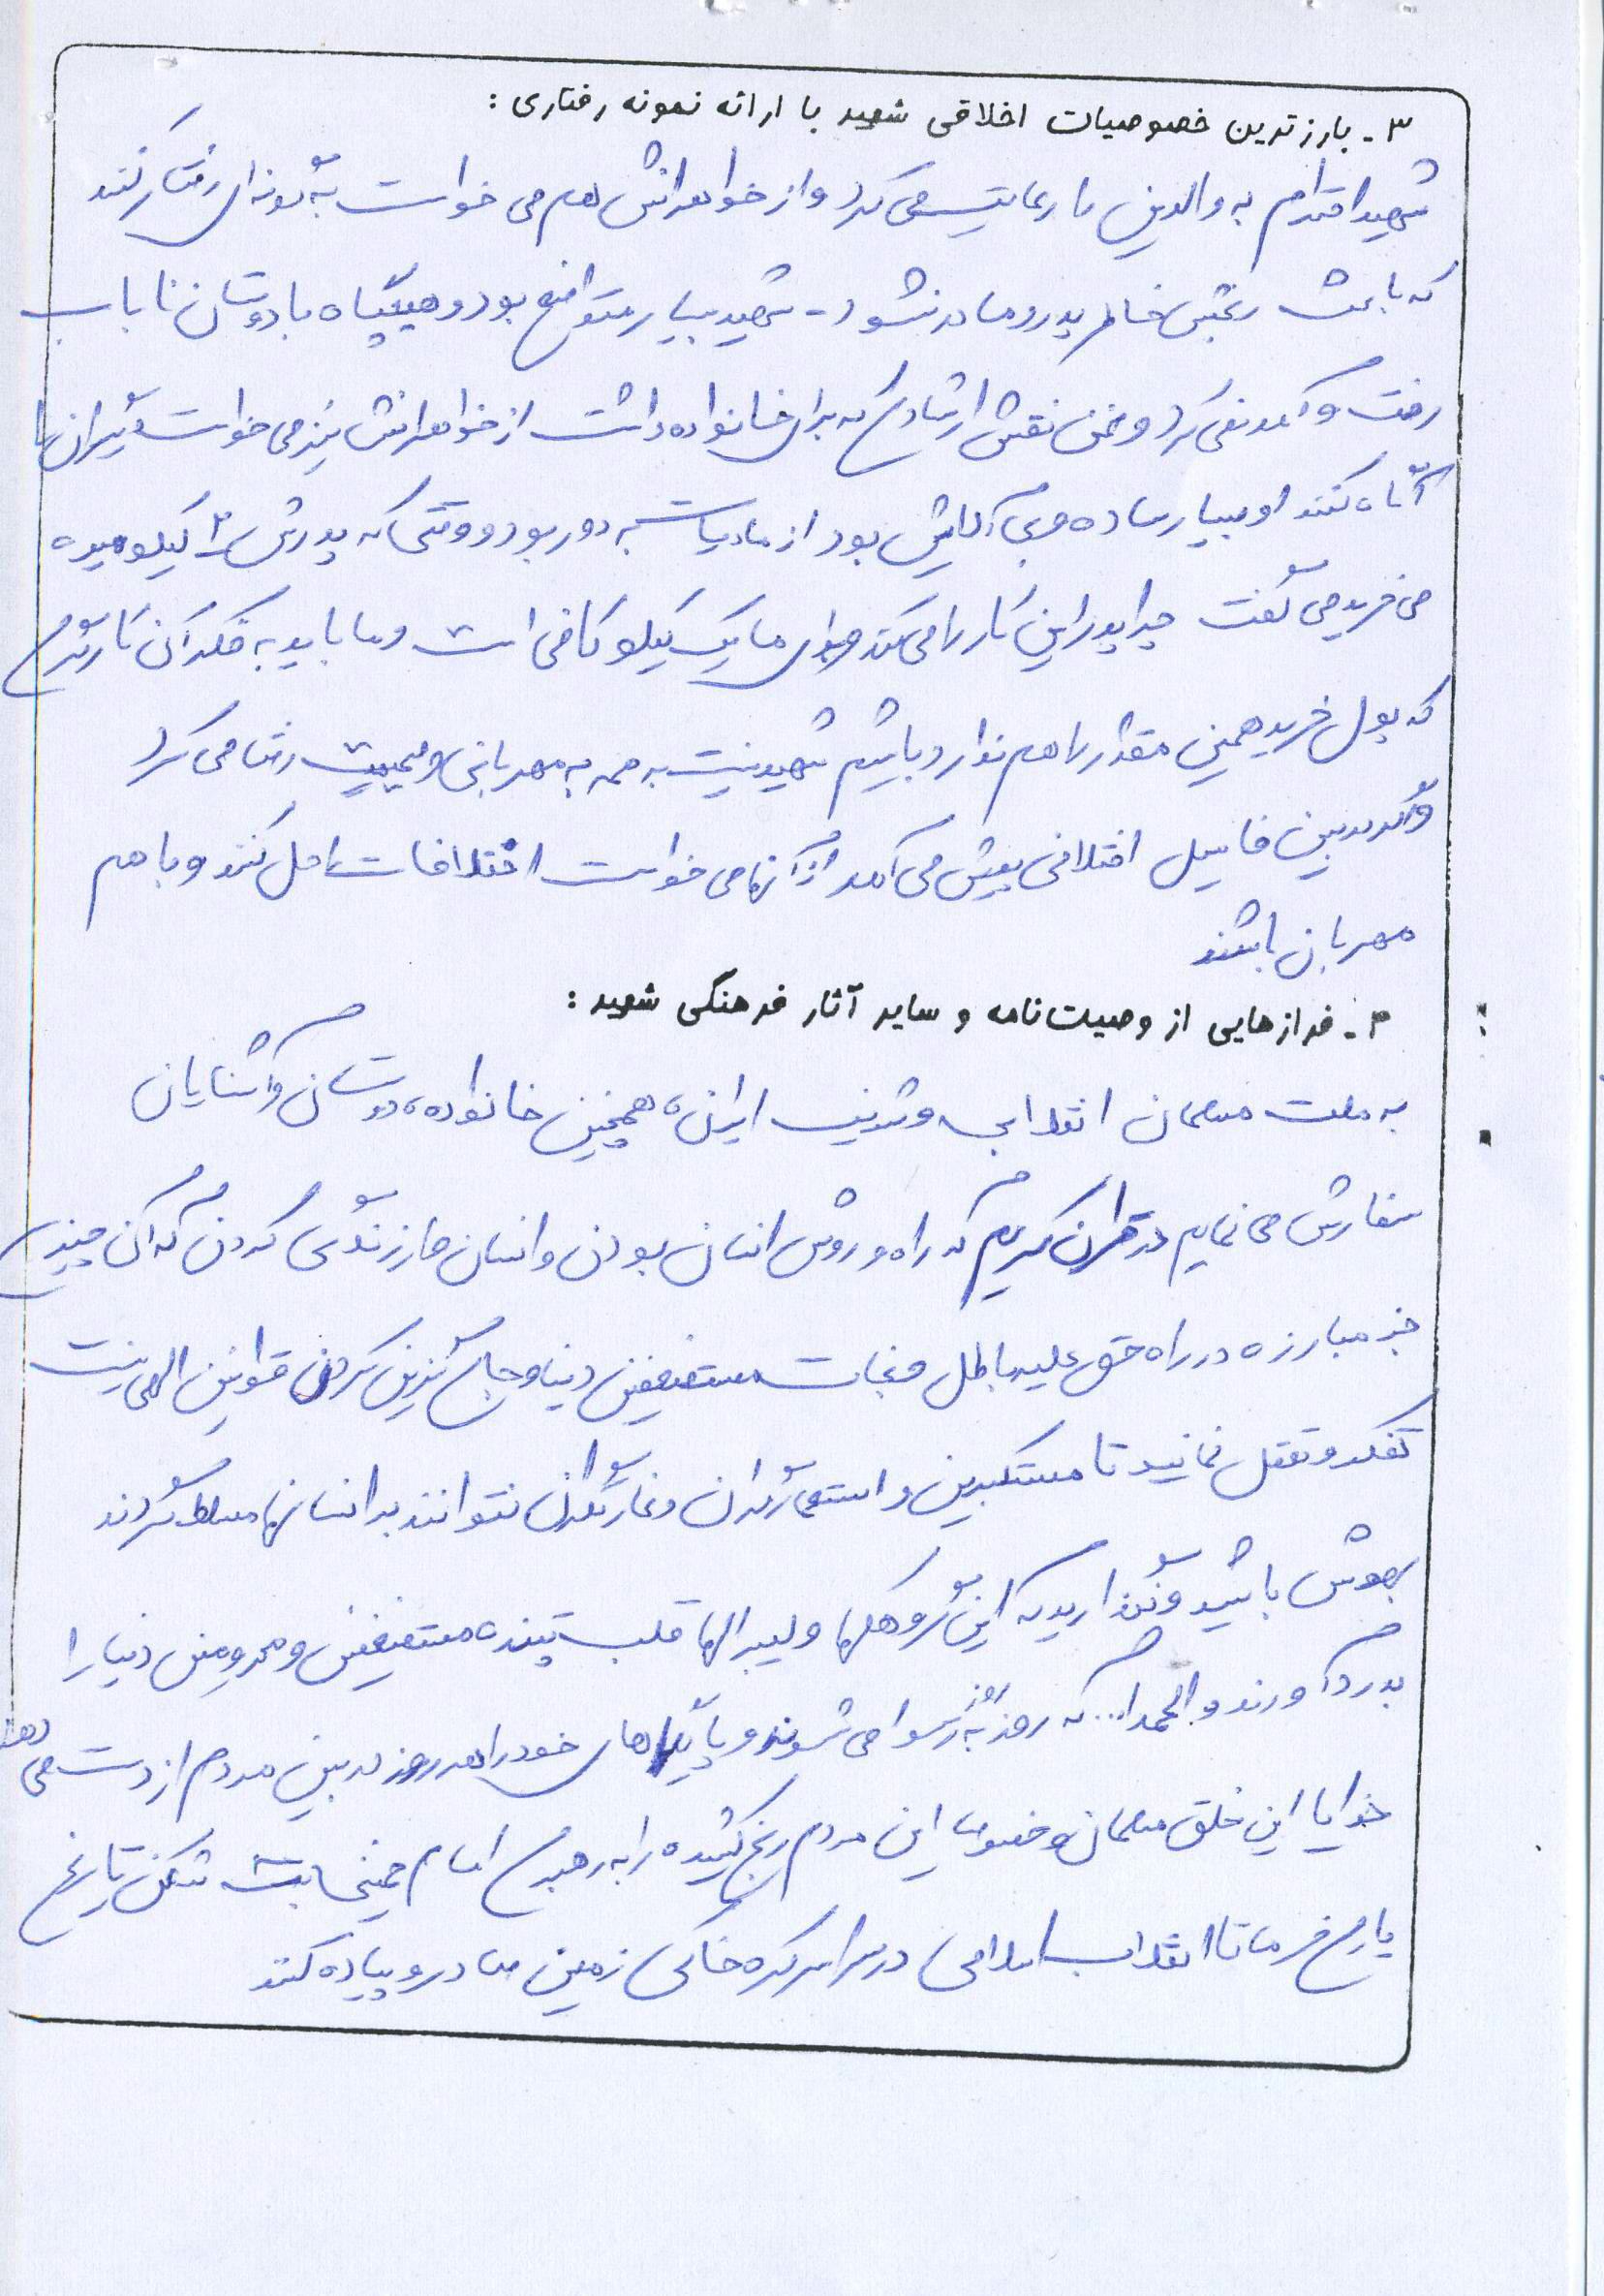 ۳ـ بارزترین خصوصیات اخلاقی شهید با ارائه نمونه رفتاری :
شهید احترام به والدین را رعایت می کرد و از خواهرانش هم می خواست به گونه ای رفتار کنند
که باعث رنجش خاطر پدر و مادر نشود - شهید بسیار متواضع بود و هیچگاه با دوستان ناباب
رفت و آمد نمی کرد و ضمن نقش ارشادی که برای خانواده داشت از خواهرانش نیز می خواست دیگران را
آگاه کنند او بسیار ساده و بی آلایش بود از مادیات به دور بود و وقتی که پدرش ۲ کیلو میوه
می خرید می گفت چرا پدر این کار را می کند برای ما یک کیلو کافی است و ما باید به فکر آن کارگری
که پول خرید همین مقدار را هم ندارد باشیم شهید نسبت به همه به مهربانی و صمیمیت رفتار می کرد
و اگر در بین فامیل اختلافی پیش می آمد از آنها می خواست اختلافات را حل کنند و با هم
مهربان باشند
۴ـ فرازهایی از وصیت‌نامه و سایر آثار فرهنگی شهید :
به ملت مسلمان انقلابی و شریف ایران، همچنین خانواده، دوستان و آشنایان
سفارش می نمایم در قرآن کریم که راه و روش انسان بودن و انسان وار زندگی کردن که آن چیزی
جز مبارزه در راه حق علیه باطل و نجات مستضعفین دنیا و جای گزین کردن قوانین الهی نیست
تفکر و تعقل نمائید تا مستکبرین و استعمارگران و غارتگران نتوانند بر انسانها مسلط گردند
بهوش باشید و نگذارید که این گروهکها و لیبرالها قلب تپنده مستضعفین و محرومین دنیا را
بدرد آورند و الحمدا... که روز به روز رسوا می شوند و پایگاههای خود را هر روز در بین مردم از دست می دهند
خدایا این خلق مسلمان و خصوصا این مردم رنج کشیده را به رهبری امام خمینی بت شکن تاریخ
یاری فرما تا انقلاب اسلامی در سراسر کره خاکی زمین صادر و پیاده کنند